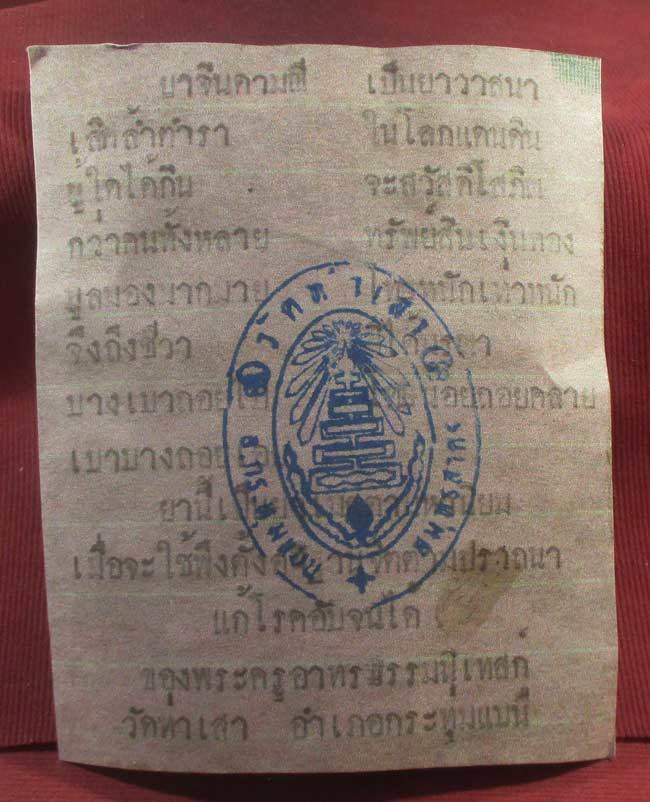 ยาจินดามณี เป็นยาวาสนา
เลิศล้ำตำรา ในโลกแดนดิน
ผู้ใดได้กิน จะสวัสดิโสภิณ
กว่าคนทั้งหลาย ทรัพย์สินเงินทอง
มูลมองมากมาย โทษหนักเท่าหนัก
จึงถึงชีวา
บางเบาถอย น้อยถอยคลาย
เบาบางถอย
ยานี้เป็น นิยม
เมื่อจะใช้พึงตั้ง ปรารถนา
แก้โรคอับจนได้
ของพระครูอาทรธรรมนิเทสก์
วัดท่าเสา อำเภอกระทุ่มแบน
วัดท่าเสา
อ.กระทุ่มแบน
สมุทรสาคร